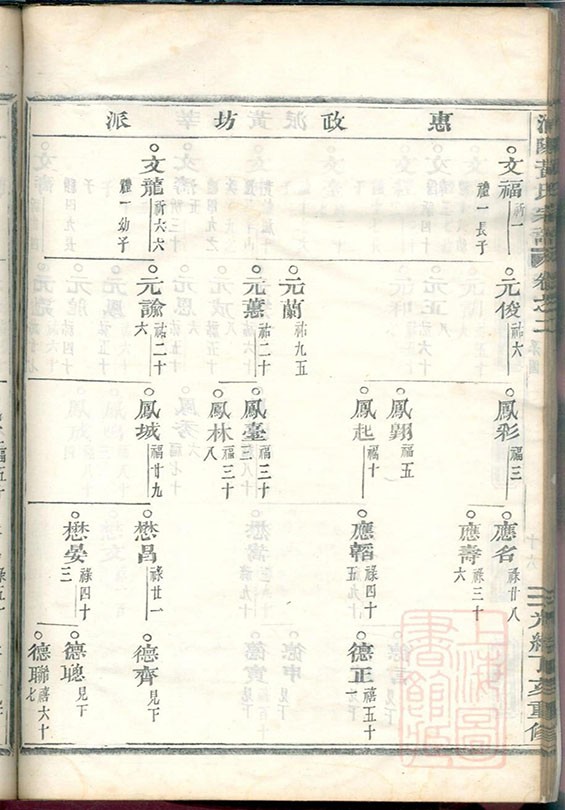 黃氏宗譜 卷之二
光緒丁亥重修
惠政坊派
文福 祈一
禮一長子
文龍 祈六六
禮一幼子
元俊 祐六
元蘭 祐九五
元蕙 祐二十
元諭 祐二十六
鳳彩 福三
鳳翔 福五
鳳起 福十
鳳臺 福三十二
鳳林 福三十八
鳳城 福廿九
應名 祿廿八
應壽 祿三十六
應韜 祿四十五
懋昌 祿廿一
懋晏 祿四十三
德正 禧五十一
德齊 見下
德聰 見下
德聯 禧六十七
上海圖書館藏